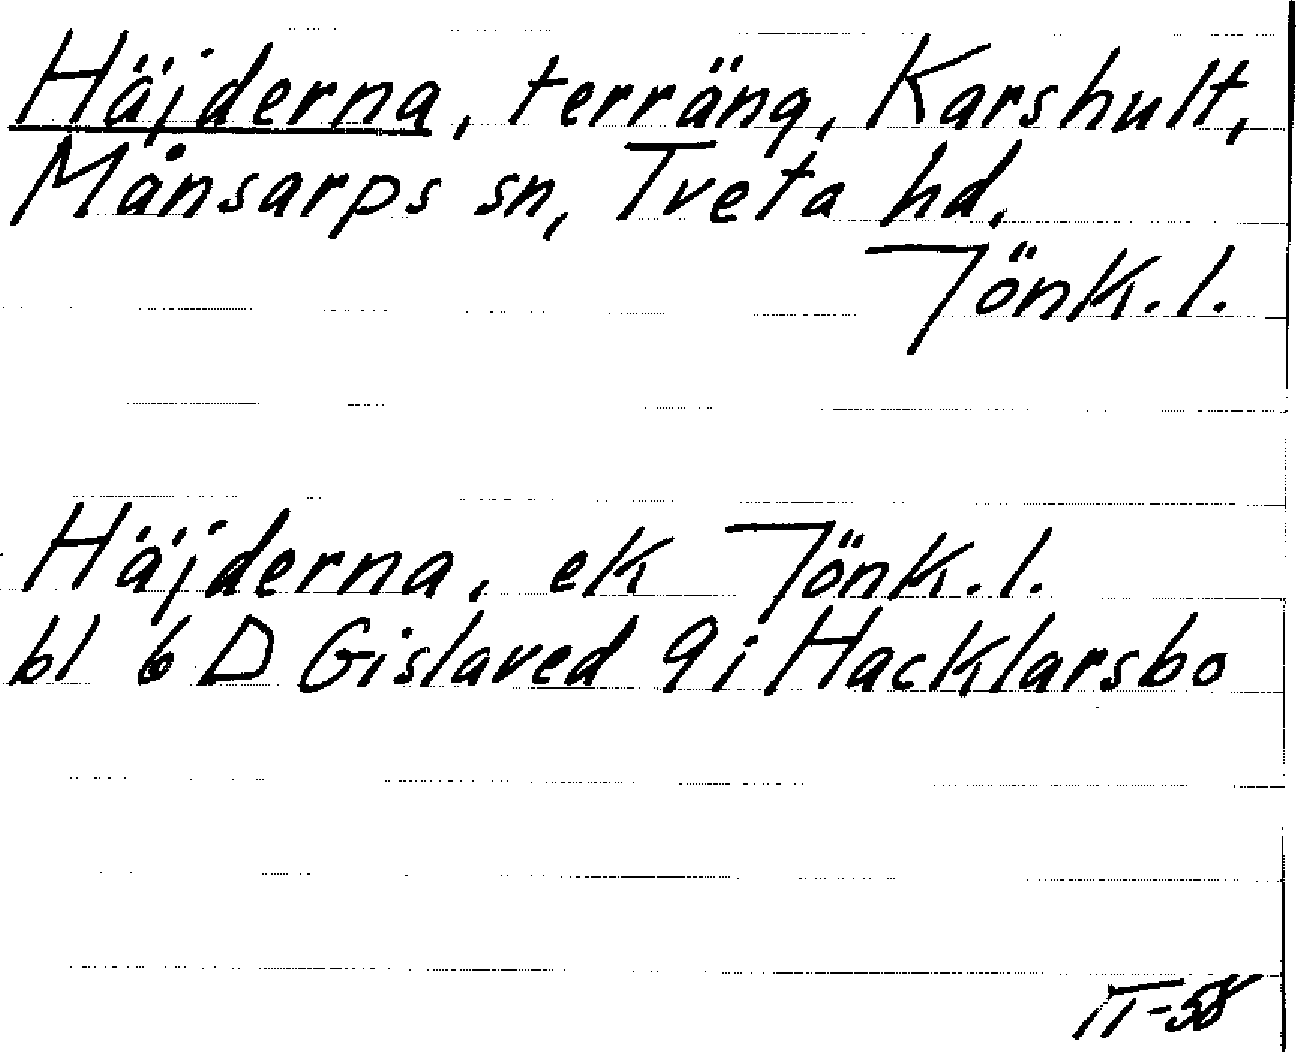 Häjderna, terräng, Karshult,
Månsarps sn, Tveta hd.
Jönk. l.
Häjderna, ek Jönk. l.
bl 6 D Gislaved 9 i Hacklarsbo